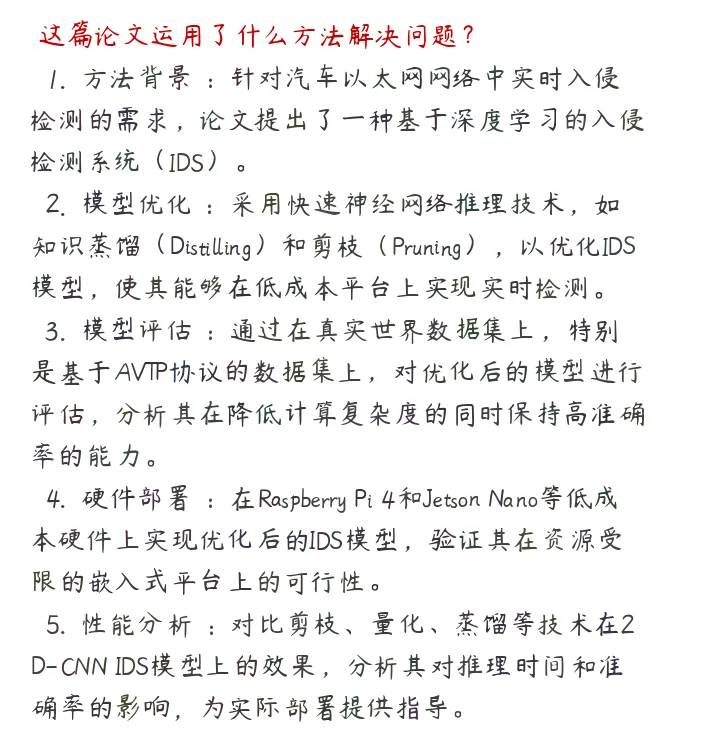 这篇论文运用了什么方法解决问题？
1. 方法背景 ：针对汽车以太网网络中实时入侵
检测的需求，论文提出了一种基于深度学习的入侵
检测系统（IDS）。
2. 模型优化 ：采用快速神经网络推理技术，如
知识蒸馏（Distilling）和剪枝（Pruning），以优化IDS
模型，使其能够在低成本平台上实现实时检测。
3. 模型评估 ：通过在真实世界数据集上，特别
是基于AVTP协议的数据集上，对优化后的模型进行
评估，分析其在降低计算复杂度的同时保持高准确
率的能力。
4. 硬件部署 ：在Raspberry Pi 4和Jetson Nano等低成
本硬件上实现优化后的IDS模型，验证其在资源受
限的嵌入式平台上的可行性。
5. 性能分析 ：对比剪枝、量化、蒸馏等技术在2
D-CNN IDS模型上的效果，分析其对推理时间和准
确率的影响，为实际部署提供指导。